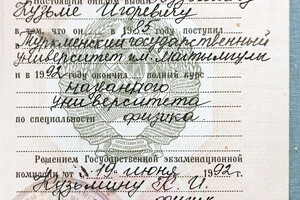 Настоящий диплом выдан
Кузьме Игоревичу
в том, что он в 19 поступил
в Туркменский государственный
университет им. Махтумкули
и в 1992 окончил полный курс
названного
университета
по специальности
физика.
Решением Государственной экзаменационной
комиссии от 19 июня 1992 г.
Кузьмину К. И.